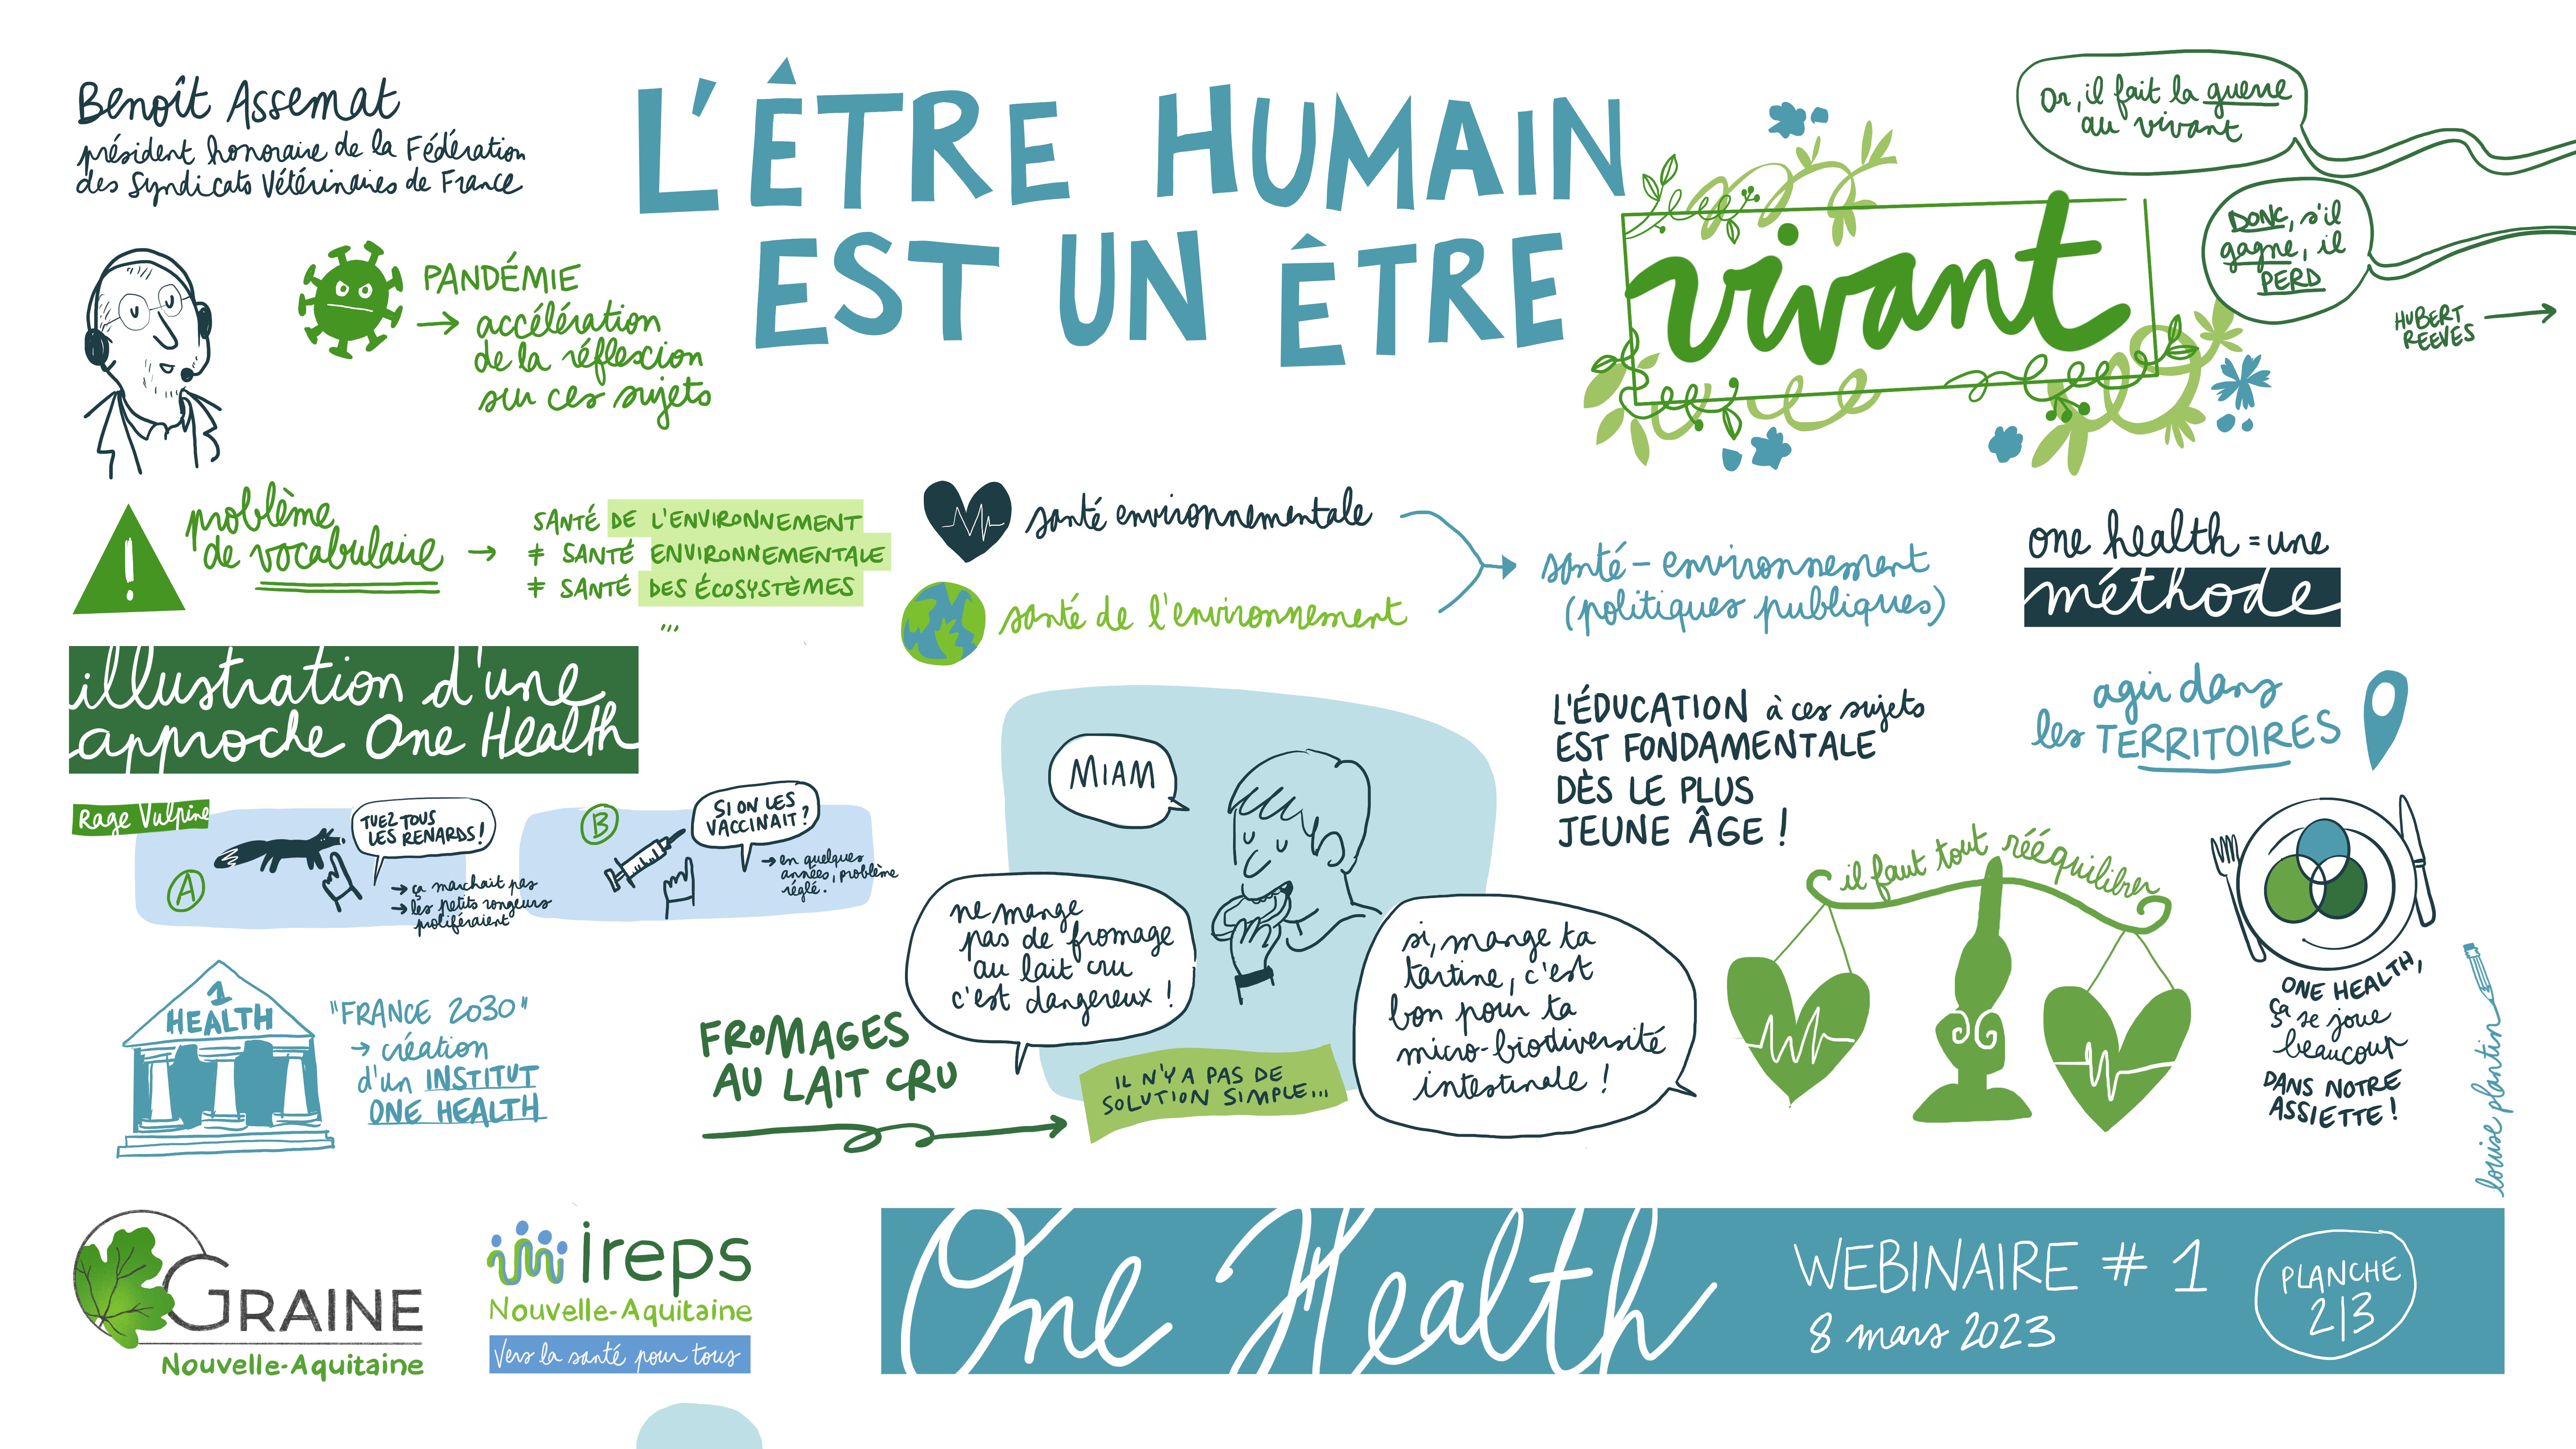 Benoît Assemat
président honoraire de la Fédération
des Syndicats Vétérinaires de France
PANDÉMIE
→ accélération
de la réflexion
sur ces sujets
L'ÊTRE HUMAIN
EST UN ÊTRE
vivant
Or, il fait la guerre
au vivant
DONC, s'il
gagne, il
PERD
HUBERT
REEVES →
!
problème
de vocabulaire →
SANTÉ DE L'ENVIRONNEMENT
≠ SANTÉ ENVIRONNEMENTALE
≠ SANTÉ DES ÉCOSYSTÈMES
...
santé environnementale
santé de l'environnement
santé - environnement
(politiques publiques)
one health = une
méthode
illustration d'une
approche One Health
Rage Vulpine
A
TUEZ TOUS
LES RENARDS !
→ ça marchait pas
→ les petits rongeurs
proliféraient
B
SI ON LES
VACCINAIT ?
→ en quelques
années, problème
réglé.
1
HEALTH
"FRANCE 2030"
→ création
d'un INSTITUT
ONE HEALTH
FROMAGES
AU LAIT CRU
MIAM
ne mange
pas de fromage
au lait cru
c'est dangereux !
si, mange ta
tartine, c'est
bon pour ta
micro-biodiversité
intestinale !
IL N'Y A PAS DE
SOLUTION SIMPLE...
L'ÉDUCATION à ces sujets
EST FONDAMENTALE
DÈS LE PLUS
JEUNE ÂGE !
agir dans
les TERRITOIRES
il faut tout rééquilibrer
ONE HEALTH,
ça se joue
beaucoup
DANS NOTRE
ASSIETTE !
louise plantin
GRAINE
Nouvelle-Aquitaine
ireps
Nouvelle-Aquitaine
Vers la santé pour tous
One Health
WEBINAIRE # 1
8 mars 2023
PLANCHE
2|3